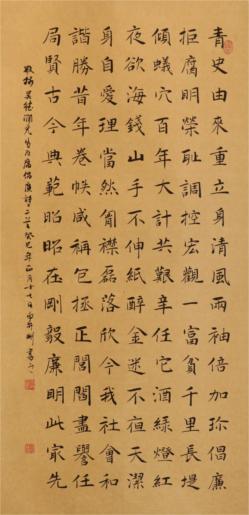 青史由來重立身清風兩袖倍加珍倡廉
拒腐明榮恥調控宏觀一富貧千里長堤
傾蟻穴百年大計共艱辛任它酒綠燈紅
夜欲海錢山手不伸紙醉金迷不亱天潔
身自愛理當然匈襟磊落欣今我社會和
諧勝昔年卷帙咸稱包拯正閭閻盡譽任
局賢古今典範昭昭在剛毅廉明此冣先
先生反腐倡廉詩二首癸巳年正月十七日書